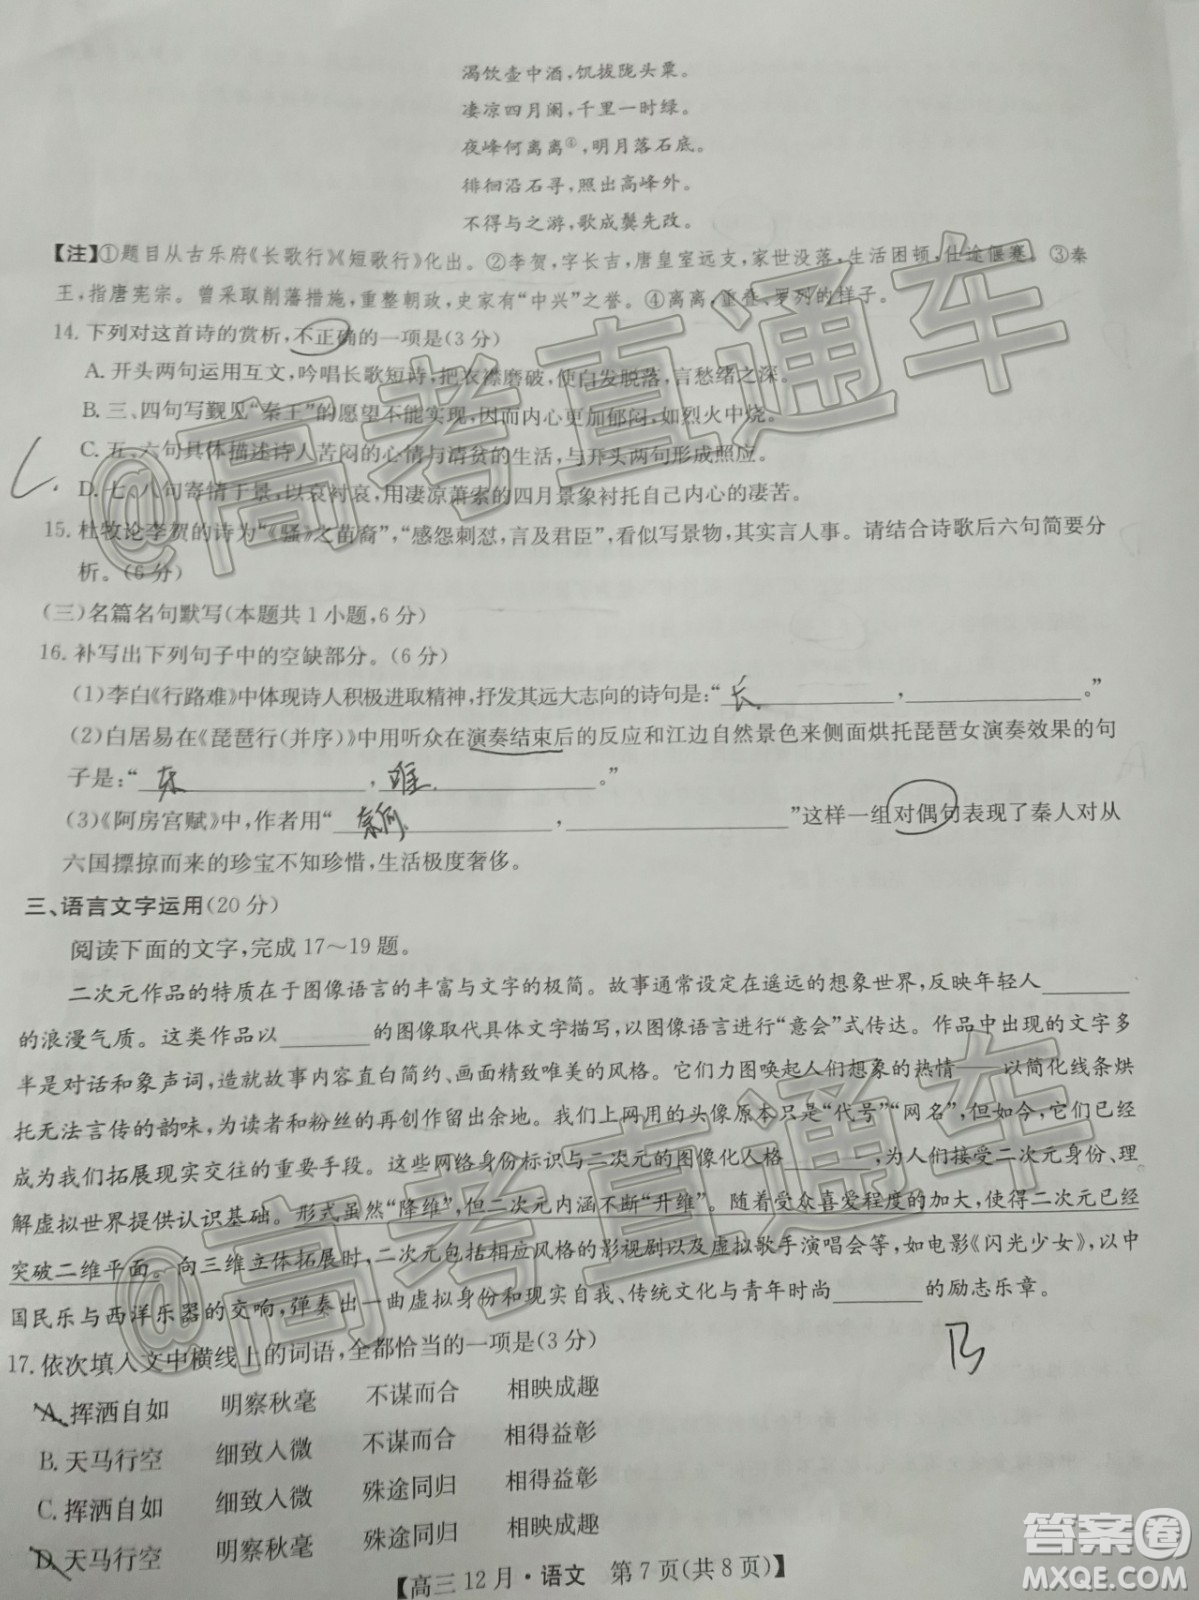 渴饮壶中酒,饥拔陇头粟。
凄凉四月阑,千里一时绿。
夜峰何离离④,明月落石底。
徘徊沿石寻,照出高峰外。
不得与之游,歌成鬓先改。
【注】①题目从古乐府《长歌行》《短歌行》化出。②李贺,字长吉,唐皇室远支,家世没落,生活困顿,仕途偃蹇。③秦
王,指唐宪宗。曾采取削藩措施,重整朝政,史家有“中兴”之誉。④离离,重叠、罗列的样子。
14. 下列对这首诗的赏析,不正确的一项是(3 分)
A. 开头两句运用互文,吟唱长歌短诗,把衣襟磨破,使白发脱落,言愁绪之深。
B. 三、四句写觐见“秦王”的愿望不能实现,因而内心更加郁闷,如烈火中烧。
C. 五、六句具体描述诗人苦闷的心情与清贫的生活,与开头两句形成照应。
D. 七、八句寄情于景,以哀衬哀,用凄凉萧索的四月景象衬托自己内心的凄苦。
15. 杜牧论李贺的诗为“《骚》之苗裔”,“感怨刺怼,言及君臣”,看似写景物,其实言人事。请结合诗歌后六句简要分
析。(6 分)
(三)名篇名句默写(本题共 1 小题,6 分)
16. 补写出下列句子中的空缺部分。(6 分)
(1)李白《行路难》中体现诗人积极进取精神,抒发其远大志向的诗句是:“长 ,  。”
(2)白居易在《琵琶行(并序)》中用听众在演奏结束后的反应和江边自然景色来侧面烘托琵琶女演奏效果的句
子是:“东 ,唯  。”
(3)《阿房宫赋》中,作者用“奈何 ,  ”这样一组对偶句表现了秦人对从
六国摽掠而来的珍宝不知珍惜,生活极度奢侈。
三、语言文字运用(20 分)
阅读下面的文字,完成 17～19 题。
二次元作品的特质在于图像语言的丰富与文字的极简。故事通常设定在遥远的想象世界,反映年轻人______
的浪漫气质。这类作品以______的图像取代具体文字描写,以图像语言进行“意会”式传达。作品中出现的文字多
半是对话和象声词,造就故事内容直白简约、画面精致唯美的风格。它们力图唤起人们想象的热情——以简化线条烘
托无法言传的韵味,为读者和粉丝的再创作留出余地。我们上网用的头像原本只是“代号”“网名”,但如今,它们已经
成为我们拓展现实交往的重要手段。这些网络身份标识与二次元的图像化人格______,为人们接受二次元身份、理
解虚拟世界提供认识基础。形式虽然“降维”,但二次元内涵不断“升维”。随着受众喜爱程度的加大,使得二次元已经
突破二维平面。向三维立体拓展时,二次元包括相应风格的影视剧以及虚拟歌手演唱会等,如电影《闪光少女》,以中
国民乐与西洋乐器的交响,弹奏出一曲虚拟身份和现实自我、传统文化与青年时尚______的励志乐章。
17. 依次填入文中横线上的词语,全都恰当的一项是(3 分)
B
A. 挥洒自如 明察秋毫 不谋而合 相映成趣
B. 天马行空 细致入微 不谋而合 相得益彰
C. 挥洒自如 细致入微 殊途同归 相得益彰
D. 天马行空 明察秋毫 殊途同归 相映成趣
【高三 12 月·语文 第 7 页(共 8 页)】
@高考直通车
@高考直通车
答案圈
MXQE.COM